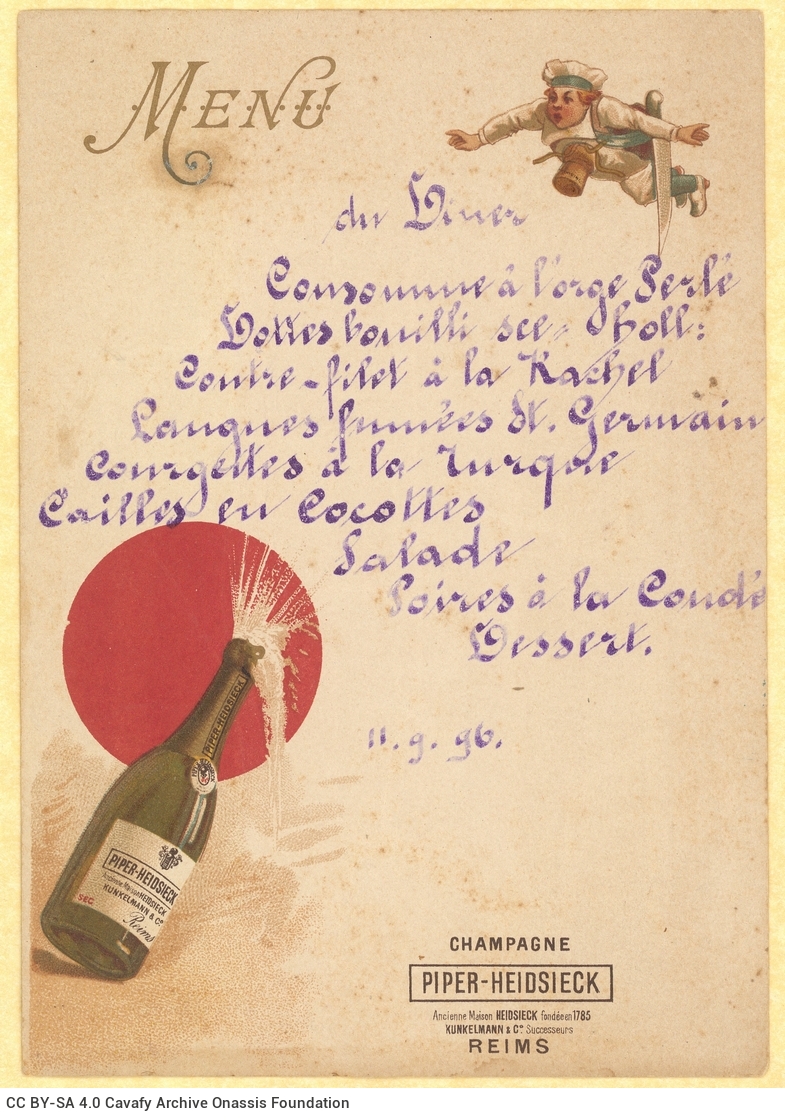 MENU
du Diner
Consommé à l'orge Perlé
bouilli sce Holl:
Contre-filet à la Rachel
Langues fumées St. Germain
Courgettes à la Turque
Cailles en Cocottes
Salade
Poires à la Condé
Dessert.
11. 9. 96.
PIPER-HEIDSIECK
PIPER-HEIDSIECK
Ancienne Maison HEIDSIECK
KUNKELMANN & Co
SEC
Reims
CHAMPAGNE
PIPER-HEIDSIECK
Ancienne Maison HEIDSIECK fondée en 1785
KUNKELMANN & Co Successeurs
REIMS
CC BY-SA 4.0 Cavafy Archive Onassis Foundation